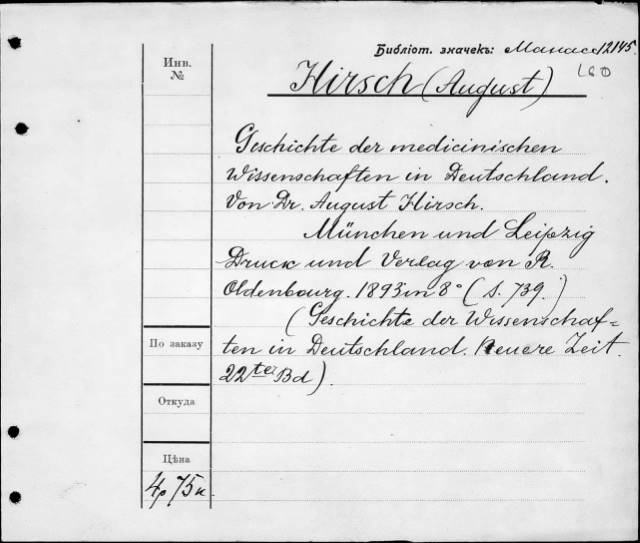 Библіот. значекъ: Манасс 12145.
Инв. №
L60
Hirsch (August)
Geschichte der medicinischen
Wissenschaften in Deutschland.
Von Dr. August Hirsch.
München und Leipzig
Druck und Verlag von R.
Oldenbourg. 1893 in 8° (S. 739.)
(Geschichte der Wissenschaf=
По заказу
ten in Deutschland. Neuere Zeit.
22ter Bd).
Откуда
Цѣна
4р 75к